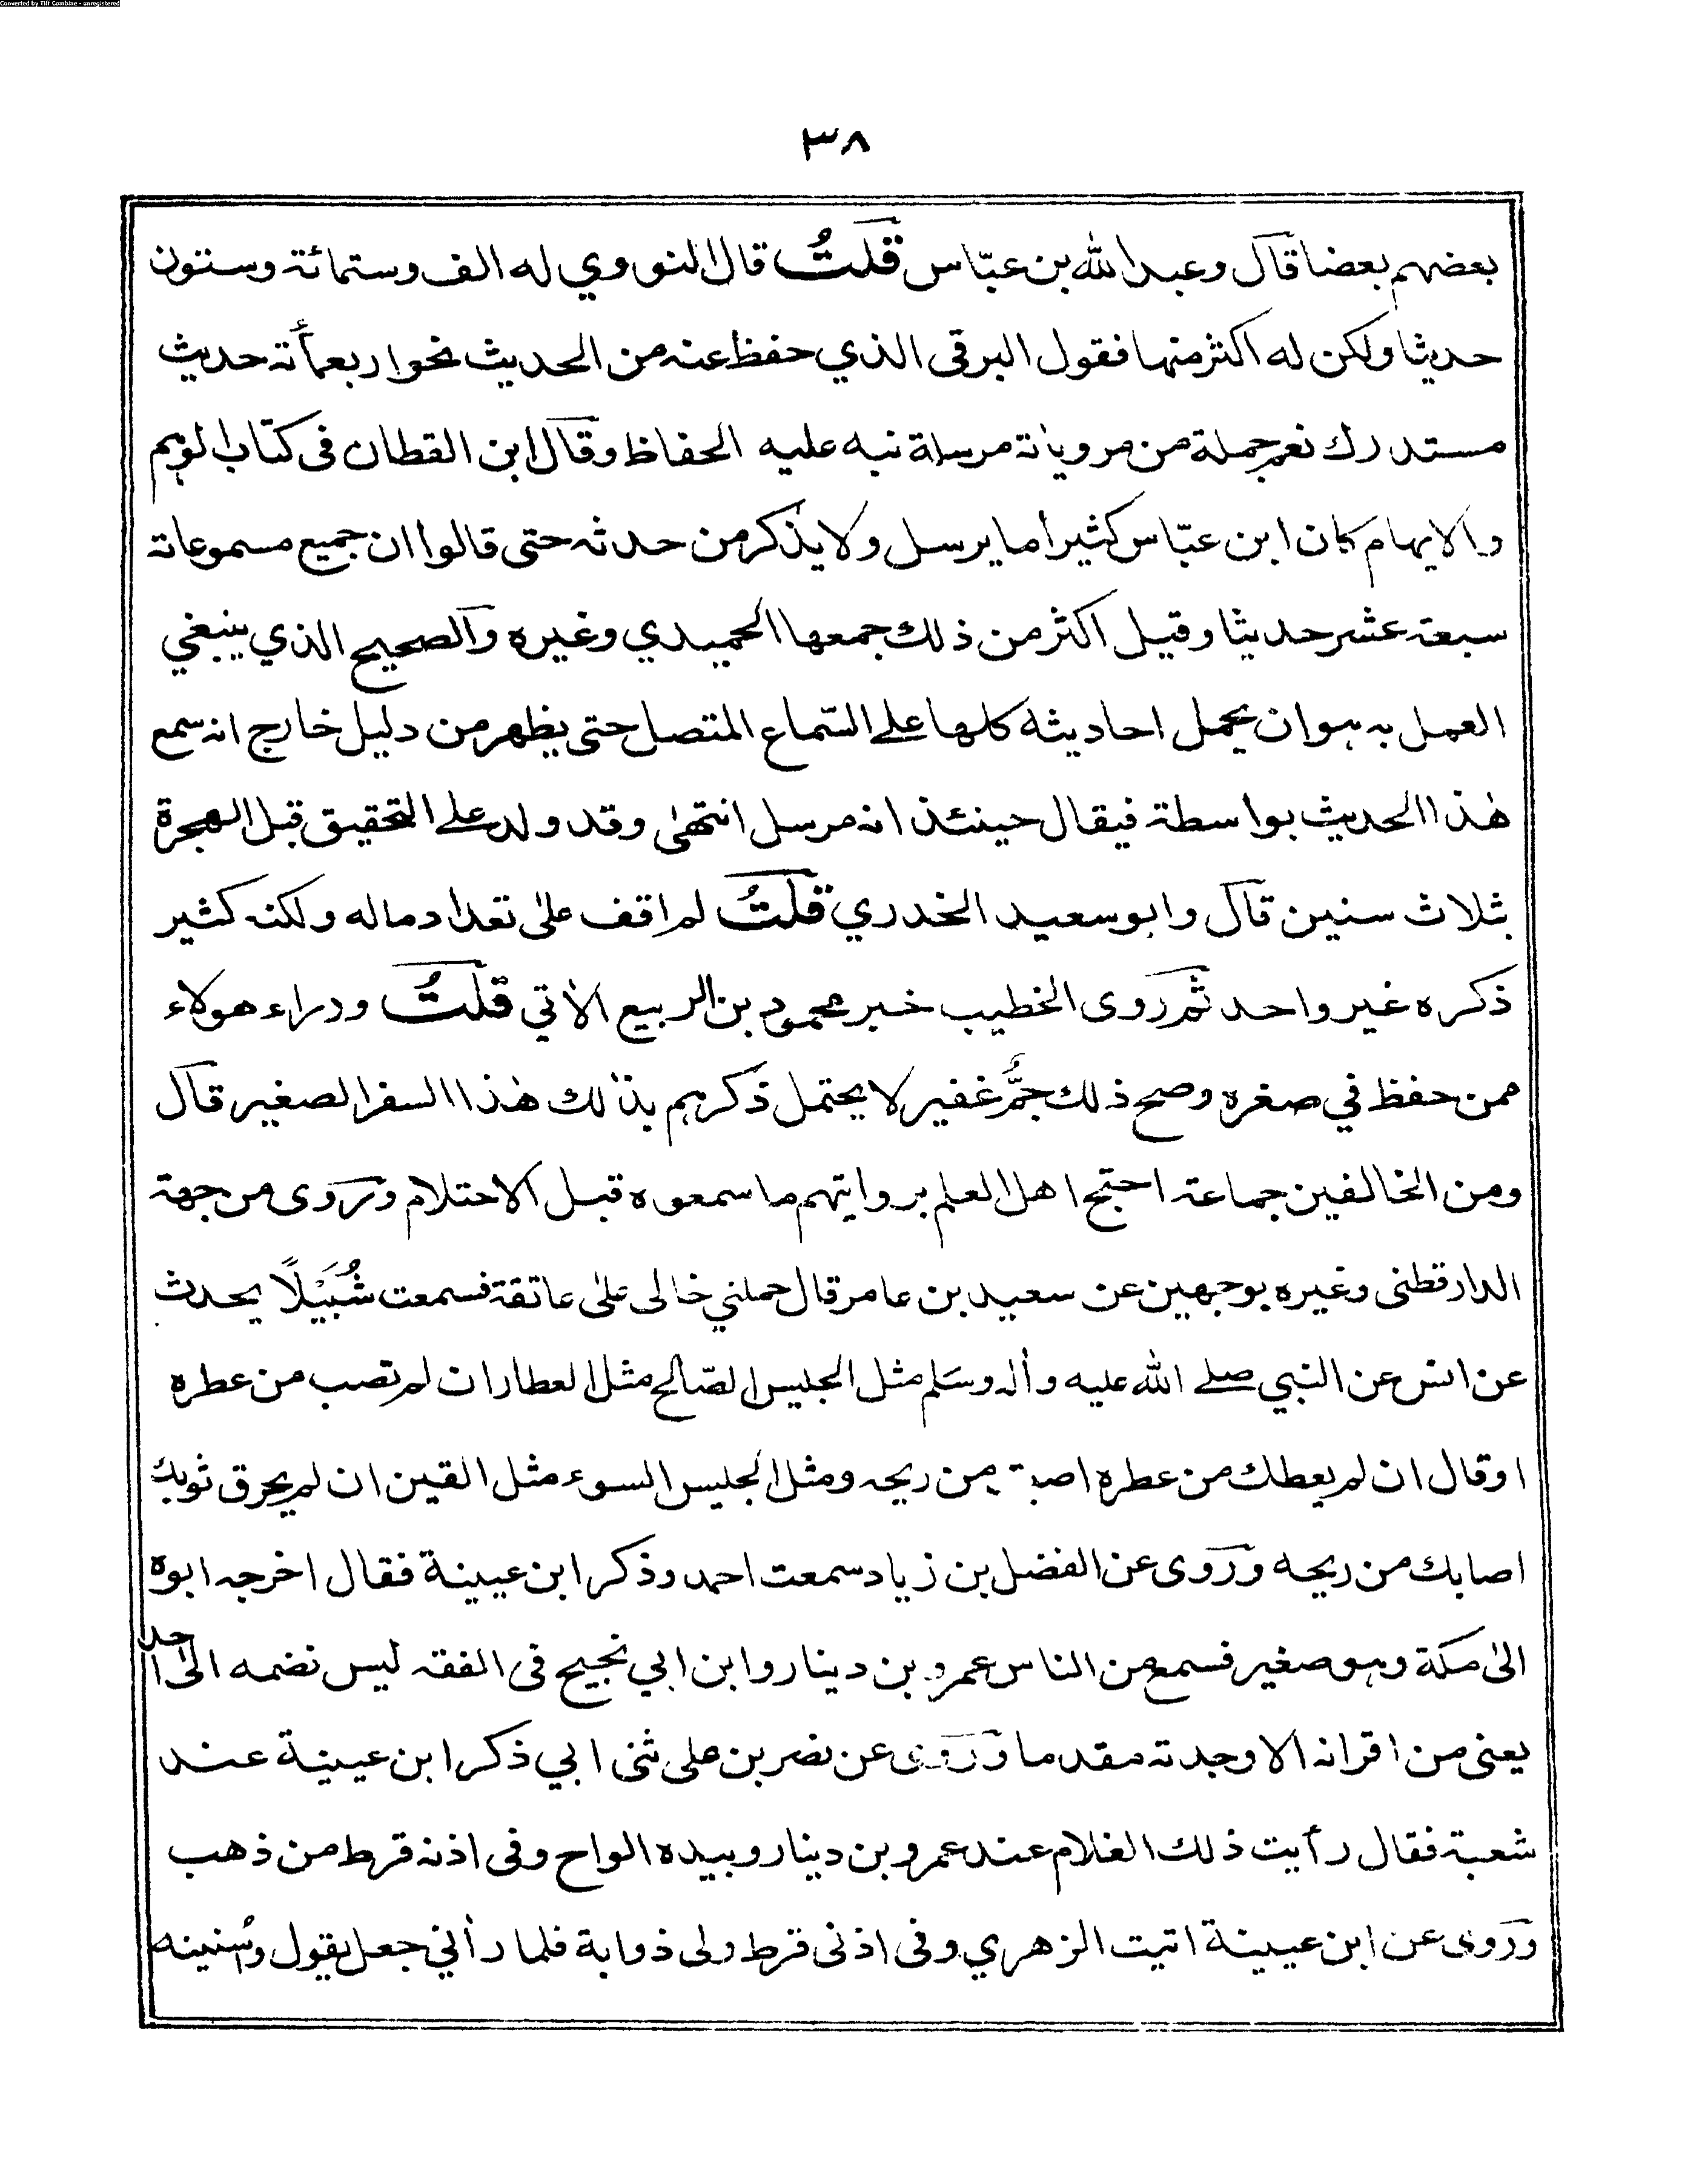 Converted by Tiff Combine - unregistered
٣٨
بعضهم بعضا قال وعبد الله بن عبّاس قلتُ قال النووي له الف وستمائة وستون
حديثا ولكن له اكثر منها فقول البرقى الذي حفظ عنه من الحديث نحو اربعمأئة حديث
مستدرك نعم جملة من مروياتة مرسلة نبه عليه الحفاظ وقال ابن القطان فى كتاب الوهم
والايهام كان ابن عبّاس كثيراً ما يرسل ولا يذكر من حدثه حتى قالوا ان جميع مسموعاته
سبعة عشر حديثا وقيل اكثر من ذلك جمعها الحميدي وغيره والصحيح الذي ينبغي
العمل به هو ان يحمل احاديثه كلها على السّماع المتصل حتى يظهر من دليل خارج انه سمع
هٰذا الحديث بواسطة فيقال حينئذ انه مرسل انتهىٰ وقد ولد على التحقيق قبل الهجرة
بثلاث سنين قال وابو سعيد الخدري قلتُ لم اقف علىٰ تعداد ماله ولكنه كثير
ذكره غير واحد ثم روى الخطيب خبر محمود بن الربيع الأتي قلتُ ووراء هولاء
ممن حفظ في صغره وصح ذلك جمٌّ غفير لا يحتمل ذكرهم بذلك هٰذا السفر الصغير قال
ومن الخالفين جماعة احتج اهل العلم بروايتهم ما سمعوه قبل الاحتلام وروى من جهة
الدارقطنى وغيره بوجهين عن سعيد بن عامر قال حملني خالى علىٰ عاتقة فسمعت شُبَيْلًا يحدث
عن انس عن النبي صلے الله عليه وأله وسَلم مثل الجليس الصّالح مثل العطار ان لم تصب من عطره
او قال ان لم يعطك من عطره اصبت من ريحه ومثل الجليس السوء مثل القين ان لم يحرق ثوبك
اصابك من ريحه وروى عن الفضل بن زياد سمعت احمد وذكر ابن عيينة فقال اخرجه ابوه
الىٰ مكة وهو صغير فسمع من الناس عمرو بن دينار وابن ابي نجيح فى الفقه ليس نضمه الىٰ احد
يعنى من اقرانه الا وجدته مقدما وروى عن نصر بن على ثنى ابي ذكر ابن عيينة عند
شعبة فقال رأيت ذلك الغلام عند عمرو بن دينار وبيده الواح وفى اذنه قرط من ذهب
وروى عن ابن عيينة اتيت الزهري وفى اذنى قرط ولى ذوابة فلما رأني جعل يقول واسنينه